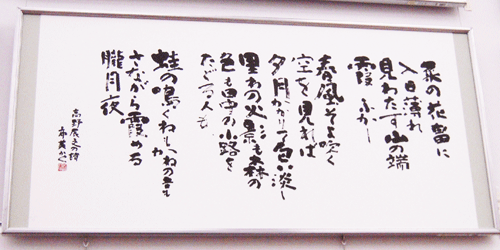 菜の花畠に
入日薄れ
見わたす山の端
霞ふかし
春風そよ吹く
空を見れば
夕月かかりて匂い淡し
里わの火影も森の
色も田中の小路を
たどる人も
蛙の鳴くねもかねの音も
さながら霞める
朧月夜
高野辰之の詩